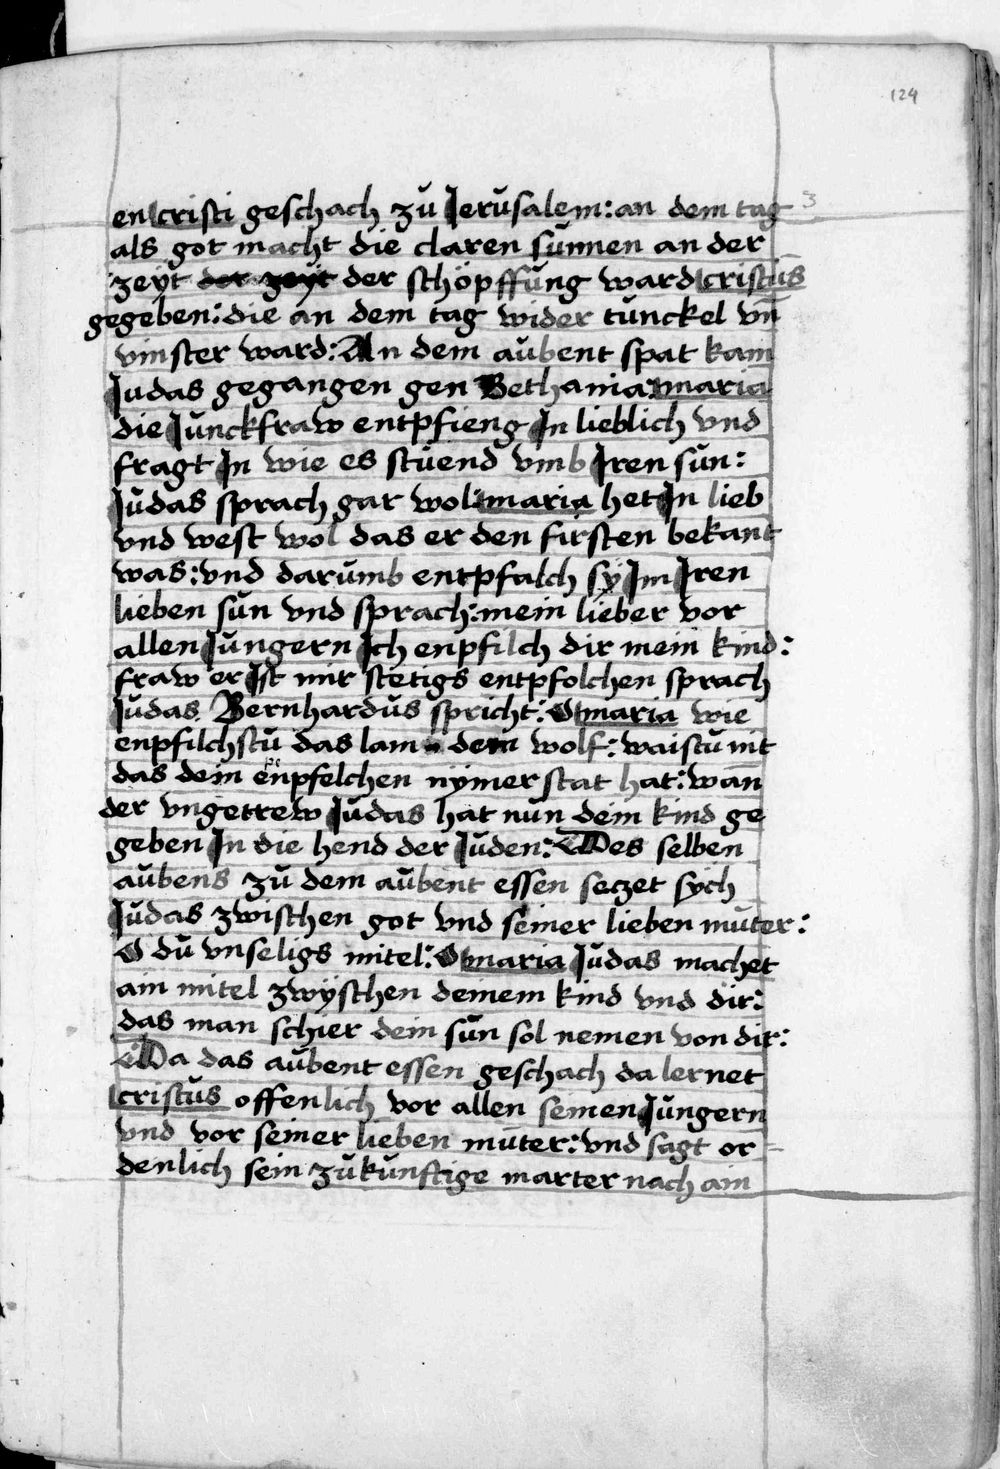 124
en cristi geschach zů Jerusalem: an dem tag 3
als got macht die claren sunnen an der
zeyt der zeyt der schöpffung ward cristus
gegeben: die an dem tag wider tunckel vñ
vinster ward: An dem aubent spat kam
Judas gegangen gen Bethania: maria
die Junckfraw entpfieng Jn lieblich vnd
fragt Jn wie es stuend vmb Jren sun:
Judas sprach gar wol: maria het Jn lieb
vnd west wol das er den fursten bekant
was: vnd darumb entpfalch sy Jm Jren
lieben sun vnd sprach: mein lieber vor
allen Jungern Jch enpfilch dir mein kind:
fraw er Jst mir stetigs entpfolchen sprach
Judas. Bernhardus spricht: O maria wie
enpfilchstu das lam dem wolf: waistu nit
das dein enpfelchen nymer stat hat: wan
der vngetrew Judas hat nun dein kind ge
geben Jn die hend der Juden: Des selben
aubens zu dem aubent essen seczet sych
Judas zwischen got vnd seiner lieben muter:
O du vnseligs mitel: O maria Judas machet
ain mitel zwyschen deinem kind vnd dir:
das man schier dein sun sol nemen von dir:
Da das aubent essen geschach da lernet
cristus offenlich vor allen seinen Jungern
vnd vor seiner lieben muter: vnd sagt or=
denlich sein zukunftige marter nach ain